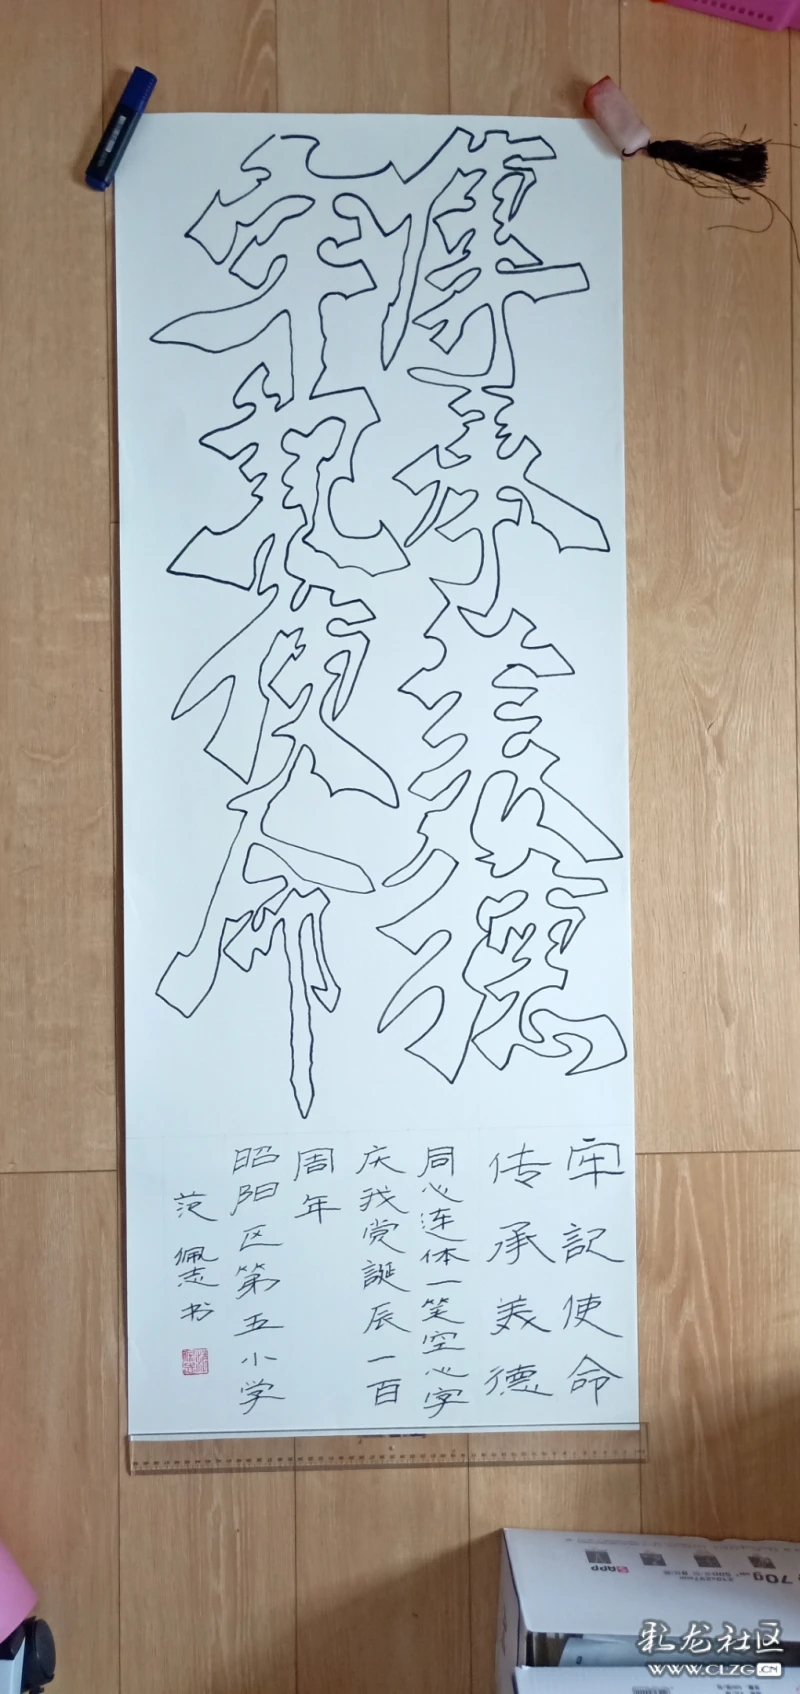 牢記使命
傳承美德
牢記使命
传承美德
同心连体一笔空心字
庆我党誕辰一百
周年
昭阳区第五小学
范佩志书
APP
70g
彩龙社区
WWW.CLZG.CN